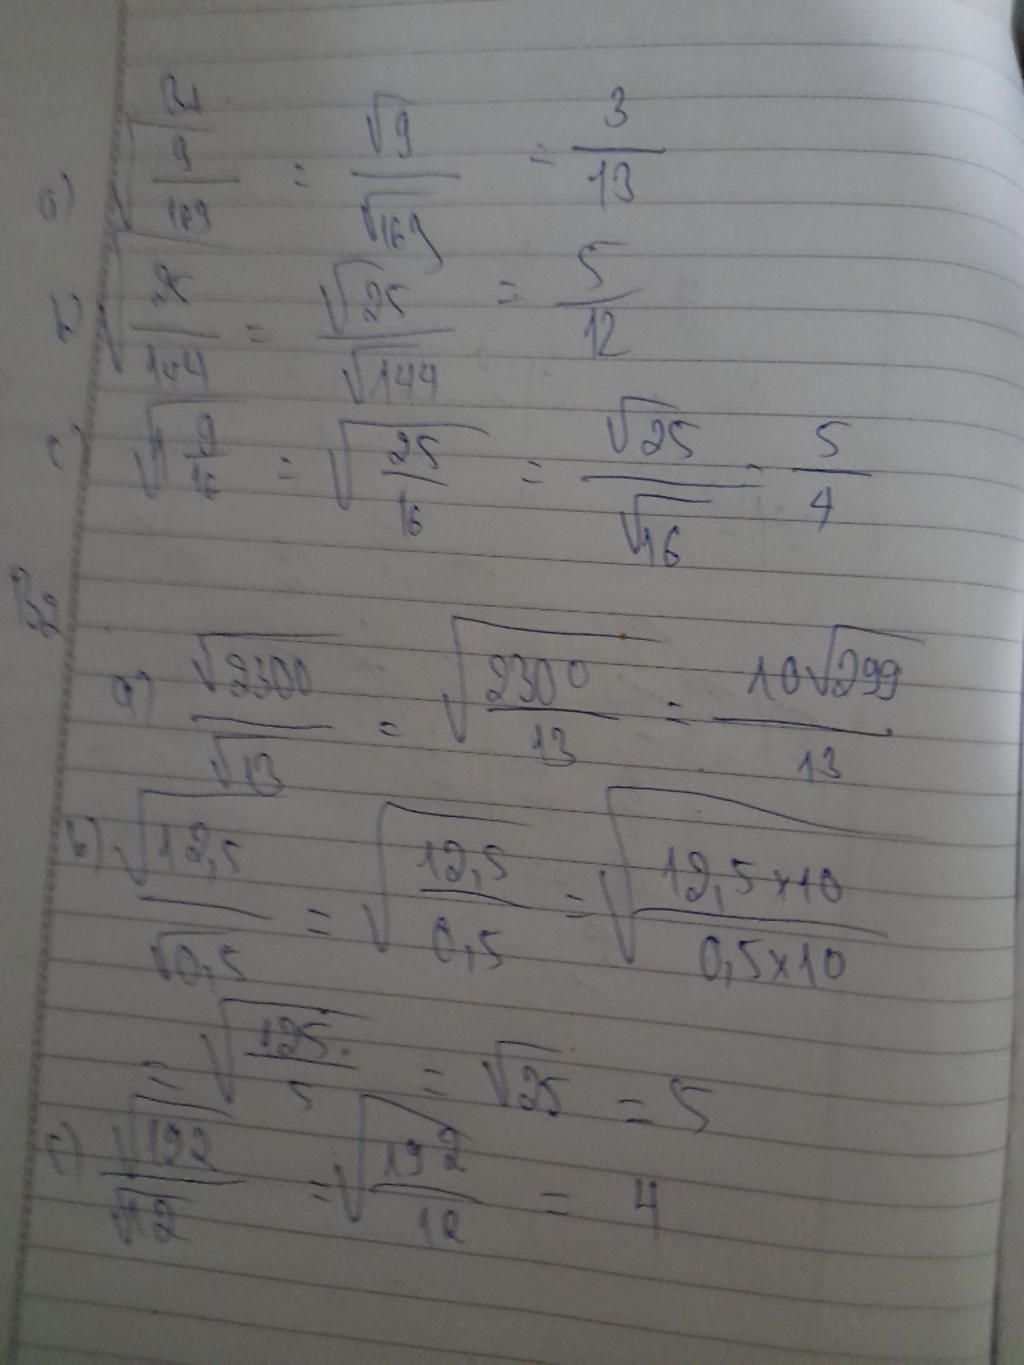 B1
a) √(9/169) = √9/√169 = 3/13
b) √(25/144) = √25/√144 = 5/12
c) √(1 9/16) = √(25/16) = √25/√16 = 5/4
a) √2300/√13 = √(2300/13) = 10√299/13
b) √12,5/√0,5 = √(12,5/0,5) = √(12,5x10/0,5x10)
= √(125/5) = √25 = 5
c) √192/√12 = √(192/12) = 4